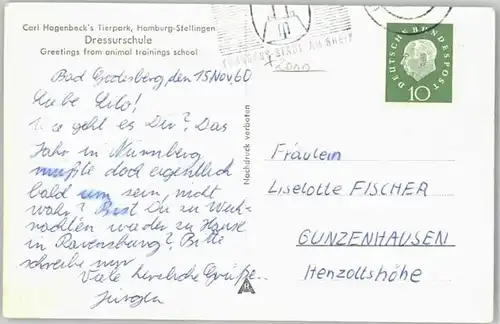 Carl Hagenbeck's Tierpark, Hamburg-Stellingen
Dressurschule
Greetings from animal trainings school
Bad Godesberg, den 15 Nov. 60
Liebe Lilo!
Wie geht es Dir? Das
Jahr in Nürnberg
müßte doch eigentlich
bald um sein, nicht
wahr? Bist Du zu Weih-
nachten wieder zu Hause
in Ravensburg? Bitte
schreibe mir
Viele herzliche Grüße
Jürgen
Nachdruck verboten
STADT AM RHEIN
DEUTSCHE BUNDESPOST
10
Fräulein
Liselotte FISCHER
GUNZENHAUSEN
Henzollshöhe